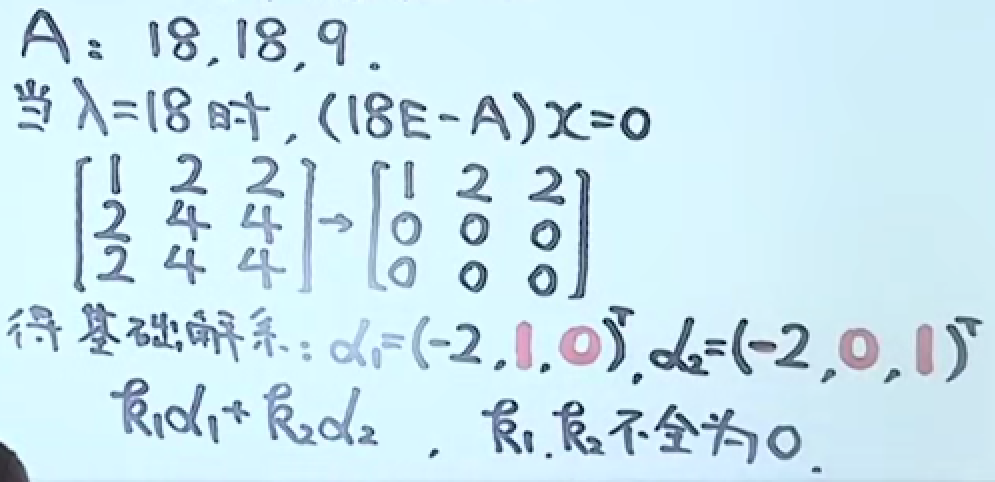 A: 18, 18, 9.
当 λ=18 时, (18E-A)x=0
[1 2 2] → [1 2 2]
[2 4 4] [0 0 0]
[2 4 4] [0 0 0]
得基础解系: α₁=(-2,1,0)ᵀ, α₂=(-2,0,1)ᵀ
k₁α₁+k₂α₂, k₁.k₂不全为0.